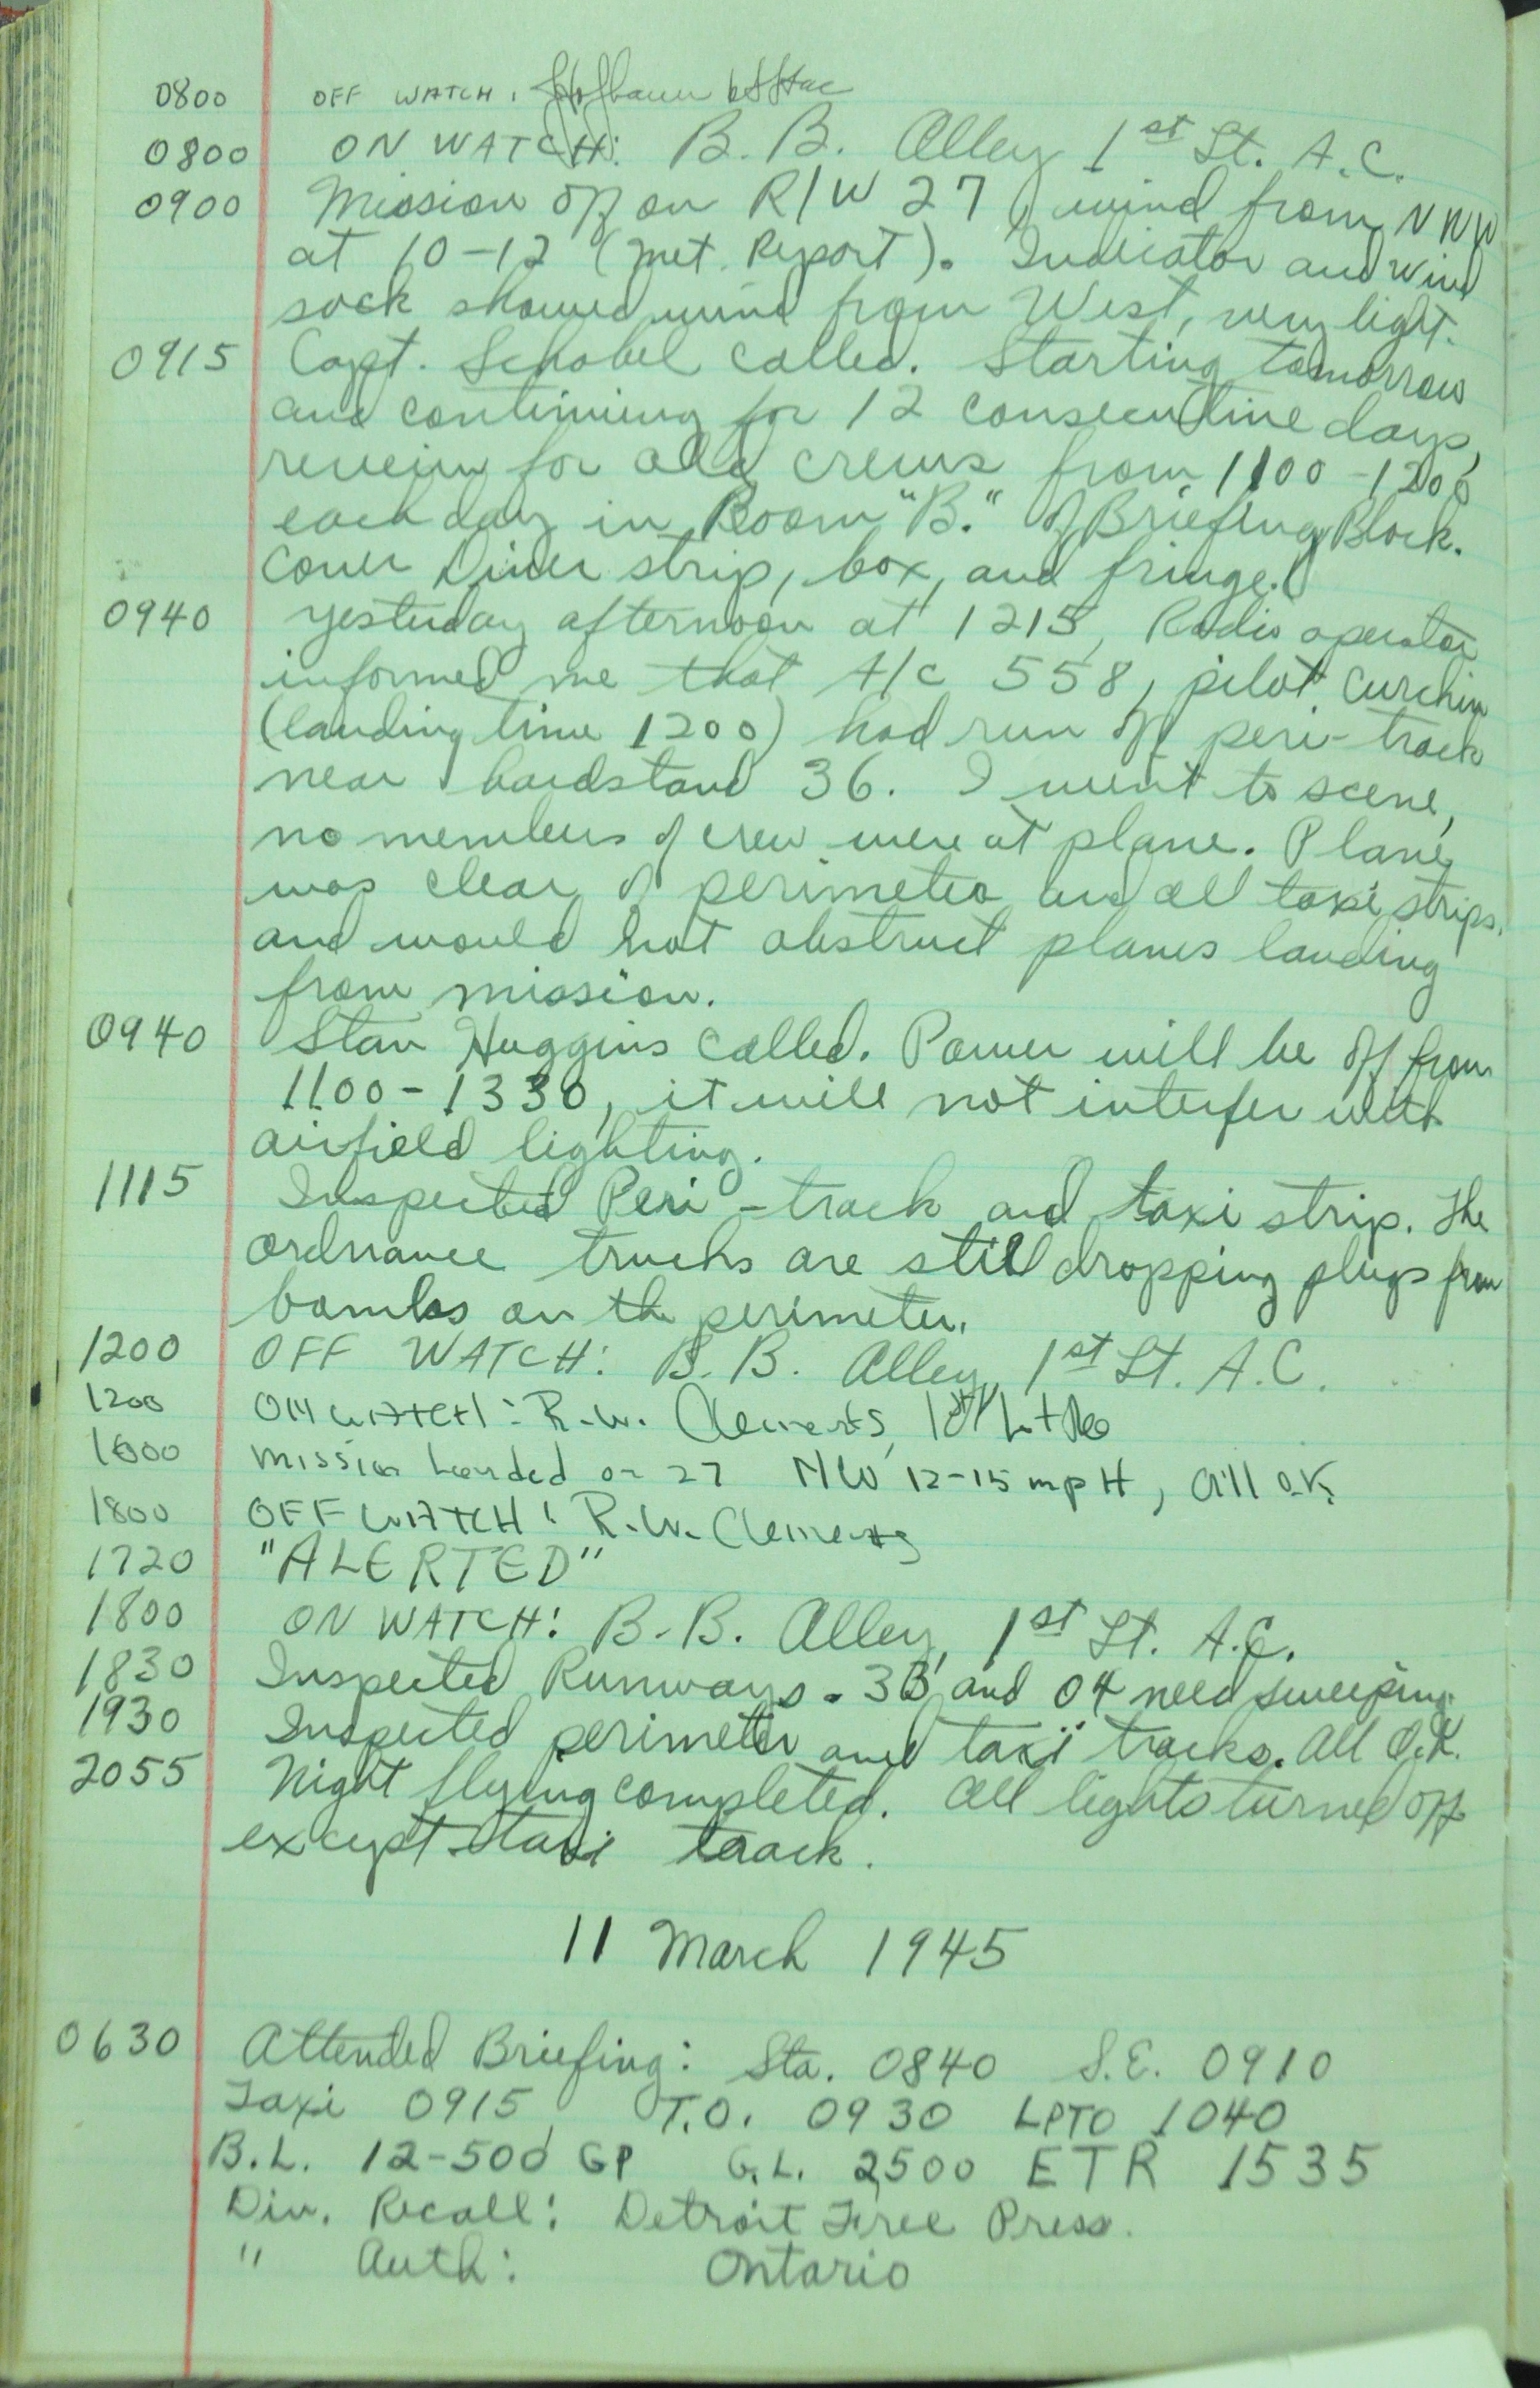 0800 OFF WATCH.
0800 ON WATCH: B. B. Alley 1st Lt. A.C.
0900 Mission off on R/W 27, wind from NNW
at 10-12 (Met. Report). Indicator and wind
sock showed wind from West, very light.
0915 Capt. Schobel called. Starting tomorrow
and continuing for 12 consecutive days,
review for old crews from 1100-1200
each day in Room "B." of Briefing Block.
Cover Diver strip, box, and fringe.
0940 Yesterday afternoon at 1215, Radio operator
informed me that A/c 558, pilot Curchin
(landing time 1200) had run off peri-track
near hardstand 36. I went to scene,
no members of crew were at plane. Plane
was clear of perimeter and all taxi strips.
and would not obstruct planes landing
from mission.
0940 Stan Huggins called. Power will be off from
1100-1330, it will not interfer with
airfield lighting.
1115 Inspected Peri-track and taxi strip. The
ordnance trucks are still dropping plugs from
bombs on the perimeter.
1200 OFF WATCH: B. B. Alley, 1st Lt. A.C.
1200 ON WATCH: R.W. Clements, 1st Lt
1600 mission landed on 27 NW 12-15 mpH, all O.K.
1800 OFF WATCH: R.W. Clements
1720 "ALERTED"
1800 ON WATCH: B.B. Alley, 1st Lt. A.C.
1830 Inspected Runways. 33 and 04 need sweeping.
1930 Inspected perimeter and taxi tracks. All O.K.
2055 Night flying completed. All lights turned off
except taxi track.
11 March 1945
0630 Attended Briefing: Sta. 0840 S.E. 0910
Taxi 0915 T.O. 0930 LPTO 1040
B.L. 12-500 GP G.L. 2,500 ETR 1535
Div. Recall: Detroit Free Press.
" Auth: Ontario